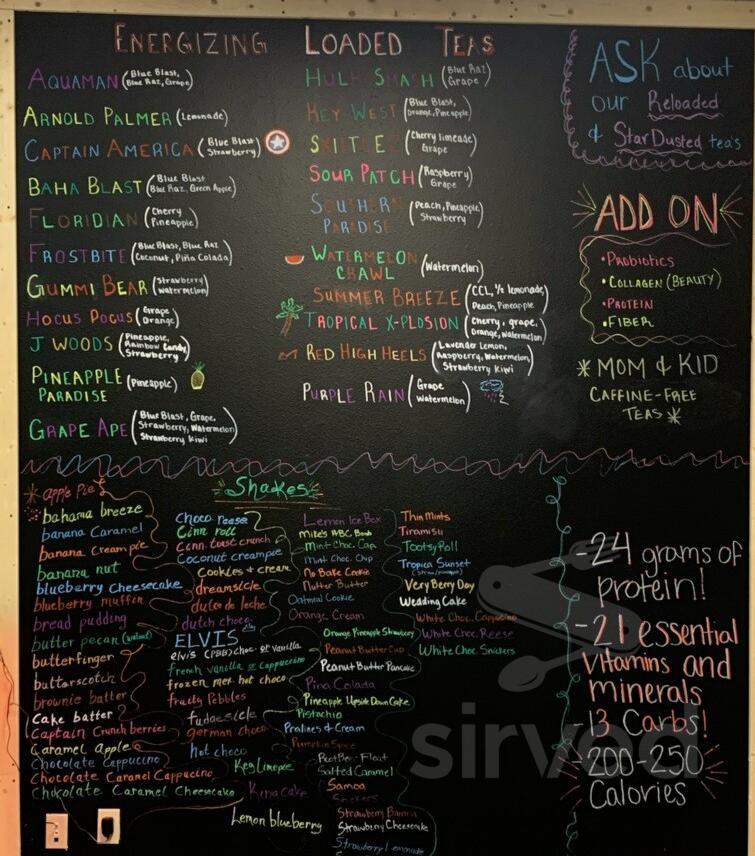 ENERGIZING LOADED TEAS
AQUAMAN (Blue Blast, Blue Raz, Grape)
ARNOLD PALMER (Lemonade)
CAPTAIN AMERICA (Blue Blast Strawberry)
BAHA BLAST (Blue Blast Blue Raz, Green Apple)
FLORIDIAN (Cherry Pineapple)
FROSTBITE (Blue Blast, Blue Raz Coconut, Piña Colada)
GUMMI BEAR (Strawberry Watermelon)
HOCUS POCUS (Grape Orange)
J WOODS (Pineapple, Rainbow Candy, Strawberry)
PINEAPPLE PARADISE (Pineapple)
GRAPE APE (Blue Blast, Grape, Strawberry, Watermelon Strawberry Kiwi)
HULK SMASH (Blue Raz Grape)
KEY WEST (Blue Blast, Orange, Pineapple)
SKITTLE (Cherry limeade Grape)
SOUR PATCH (Raspberry Grape)
SOUTHERN PARADISE (Peach, Pineapple, Strawberry)
WATERMELON CRAWL (Watermelon)
SUMMER BREEZE (CCL, 1/2 lemonade, Peach, Pineapple)
TROPICAL X-PLOSION (Cherry, grape, Orange, Watermelon)
RED HIGH HEELS (Lavender Lemon, Raspberry, Watermelon, Strawberry Kiwi)
PURPLE RAIN (Grape Watermelon)
ASK about
our Reloaded
& StarDusted tea's
ADD ON
•Probiotics
•COLLAGEN (BEAUTY)
•PROTEIN
•FIBER
* MOM & KID
CAFFINE-FREE
TEAS *
Shakes
apple Pie
bahama breeze
banana Caramel
banana cream pie
banana nut
blueberry Cheesecake
blueberry muffin
bread pudding
butter pecan (walnut)
butterfinger
butterscotch
brownie batter
Cake batter
Captain Crunch berries
Caramel apple
Chocolate Cappuccino
Chocolate Caramel Cappuccino
Chocolate Caramel Cheesecake
Choco reese
Cinn roll
Cinn. toast crunch
Coconut creampie
Cookies + cream
dreamsicle
dulce de leche
dutch choco
ELVIS
elvis (PBB) choc or Vanilla
french vanilla or Cappuccino
frozen mex hot choco
fruity Pebbles
fudgesicle
german choco
hot choco
Key limepie
Kena Cake
Lemon blueberry
Lemon Ice Box
Mike's HBC Bomb
Mint Choc. Cap.
Mint Choc Chip
No Bake Cookie
Nutter Butter
Oatmeal Cookie
Orange Cream
Orange Pineapple Strawberry
Peanut Butter Cup
Peanut Butter Pancake
Pina Colada
Pineapple Upside Down Cake
Pistachio
Pralines & Cream
Pumpkin Spice
RootBeer Float
Salted Caramel
Samoa
Snickers
Strawberry Banana
Strawberry Cheesecake
Strawberry Lemonade
Thin Mints
Tiramisu
Tootsy Roll
Tropica Sunset
Very Berry Day
Wedding Cake
White Choc. Cappuccino
White Choc. Reese
White Choc. Snickers
-24 grams of
protein!
-21 essential
vitamins and
minerals
-13 Carbs!
-200-250
Calories
sirved